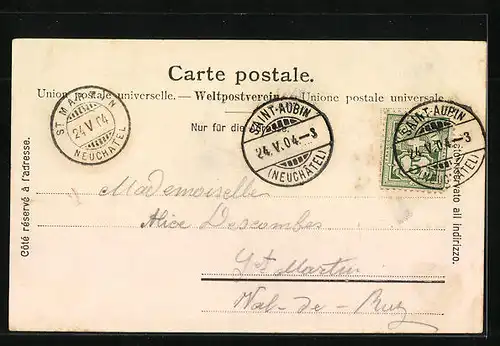 Carte postale.
Union postale universelle. — Weltpostverein — Unione postale universale
Nur für die
ST MARTIN
24.V.04
NEUCHATEL
SAINT-AUBIN
24.V.04-3
(NEUCHATEL)
SAINT-AUBIN
24.V.04-3
(NEUCHATEL)
Côté réservé à l'adresse.
riservato all indirizzo.
Mademoiselle
Alice Descombes
St Martin
Val-de-Ruz